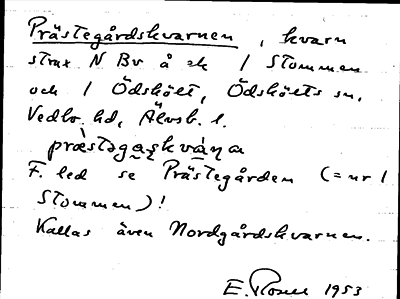 Prästegårdskvarnen, kvarn
strax N Bv å ek 1 Stommen
och 1 Ödskölt, Ödskölts sn,
Vedbo hd, Älvsb. l.
F. led se Prästegården (= nr 1
Stommen)!
Kallas även Nordgårdskvarnen.
E. Rosell 1953